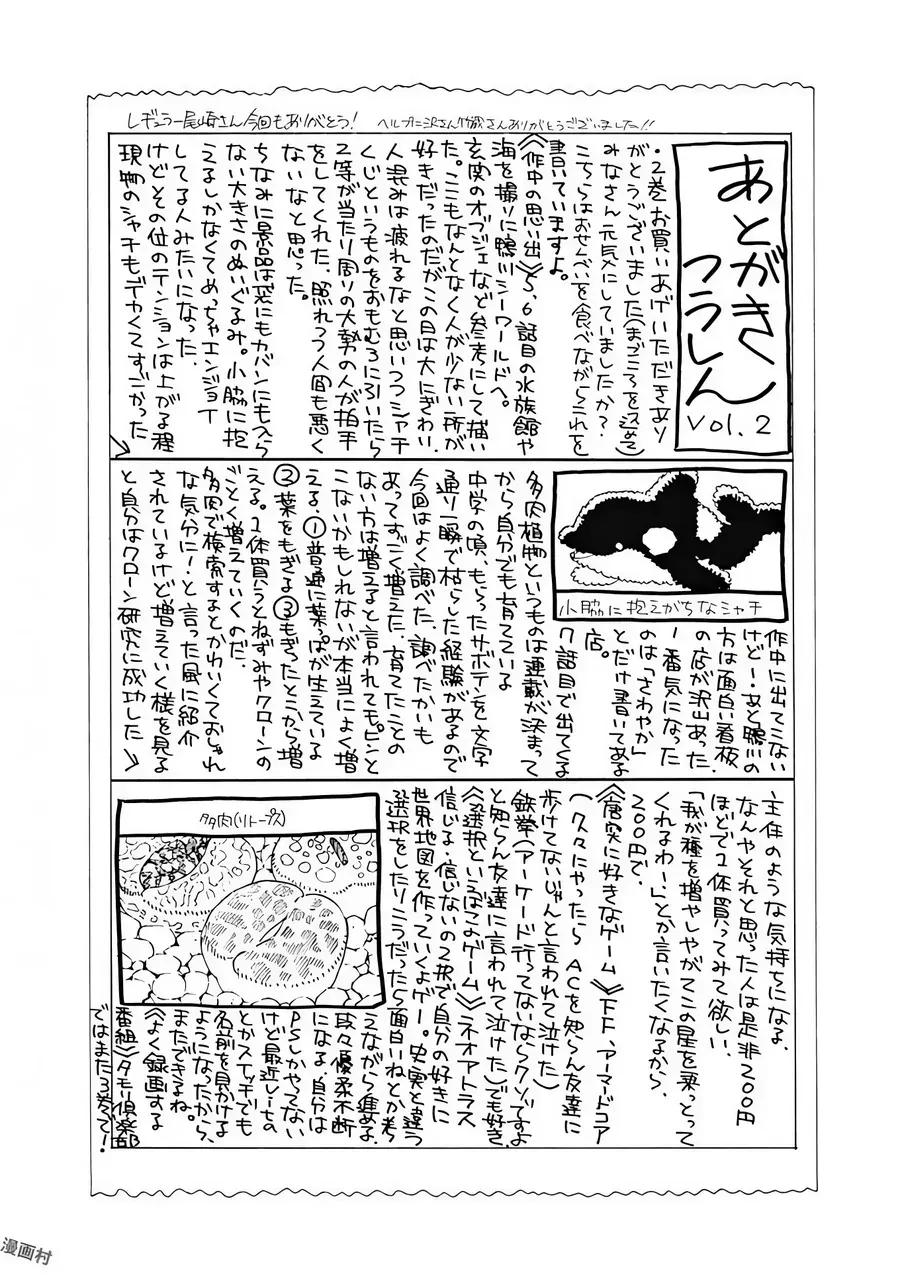 レギュラー尾崎さん今回もありがとう! ヘルプ二沢さん竹蔵さんありがとうございました!!
あとがき
つうしん
vol.2
・2巻お買いあげいただきあり
がとうございました(まごころを込めて)
みなさん元気にしていましたか?
こちらはおせんべいを食べながらこれを
書いていますよ。
《作中の思い出》5,6話目の水族館や
海を撮りに鴨川シーワールドへ。
玄関のオブジェなど参考にして描い
た。ここもなんとなく人が少ない所が
好きだったのだがこの日は大にぎわい.
人混みは疲れるなと思いつつシャチ
くじというものをおもむろに引いたら
2等が当たり周りの大勢の人が拍手
をしてくれた。照れつつ人間も悪く
ないなと思った。
ちなみに景品は袋にもカバンにも入ら
ない大きさのぬいぐるみ。小脇に抱
えるしかなくてめっちゃエンジョイ
してる人みたいになった
けどその位のテンションは上がる程
現物のシャチもデカくてすごかった
小脇に抱えがちなシャチ
作中に出てこない
けどーあと鴨川の
方は面白い看板
の店が沢山あった.
1番気になった
のは「さわやか」
とだけ書いてある
店。
7話目で出てくる
多肉植物というものは連載が決まって
から自分でも育てている
中学の頃、もらったサボテンを文字
通り一瞬で枯らした経験があるので
今回はよく調べた、調べたかいも
あってすごく増えた.育てたことの
ない方は増えると言われてもピンと
こないかもしれないが本当によく増
える.①普通に葉っぱが生えている
②葉をもぎる③もぎったとこから増
える。1体買うとねずみやクローンの
ごとく増えていくのだ.
多肉で検索するとかわいくておしゃれ
な気分に!と言った風に紹介
されているけど増えていく様を見る
と自分はクローン研究に成功した
主任のような気持ちになる.
なんやそれと思った人は是非200円
ほどで1体買ってみて欲しい.
「我が種を増やしやがてこの星を乗っとって
くれるわー」とか言いたくなるから.
200円で.
《唐突に好きなゲーム》FF、アーマードコア
(久々にやったらACを知らん友達に
歩けてないじゃんと言われて泣けた)
鉄拳(アーケード行ってないならクソですよ
と知らん友達に言われて泣けた)でも好き.
《選択といえばこのゲーム》ネオアトラス
信じる・信じないの2択で自分の好きに
世界地図を作っていくよゲー。史実と違う
選択をしたりこうだったら面白いねとか考
えながら進める.
段々優柔不断
になる.自分は
PSしかやってない
けど最近レーもの
とかスイッチでも
名前を見かける
ようになったから、
またできるね。
《よく録画する
番組》タモリ倶楽部
ではまた3巻で!
多肉(リトープス)
漫画村